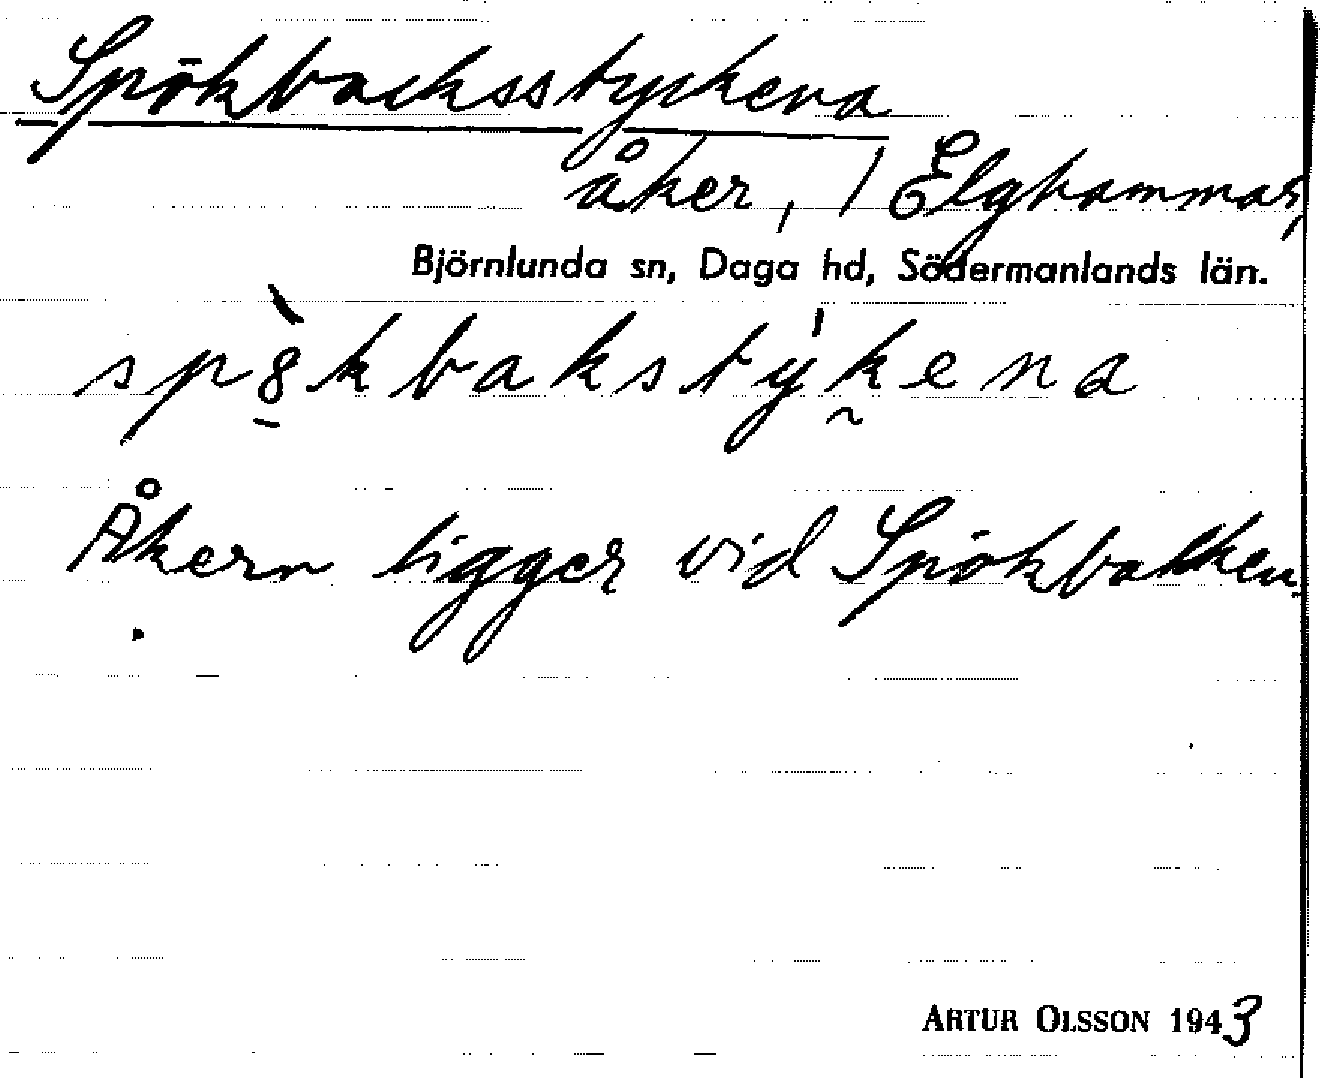 Spökbacksstyckena
åker, / Elghammar,
Björnlunda sn, Daga hd, Södermanlands län.
sp8̱̀kbakstýk̰ena
Åkern ligger vid Spökbacken.
ARTUR OLSSON 1943